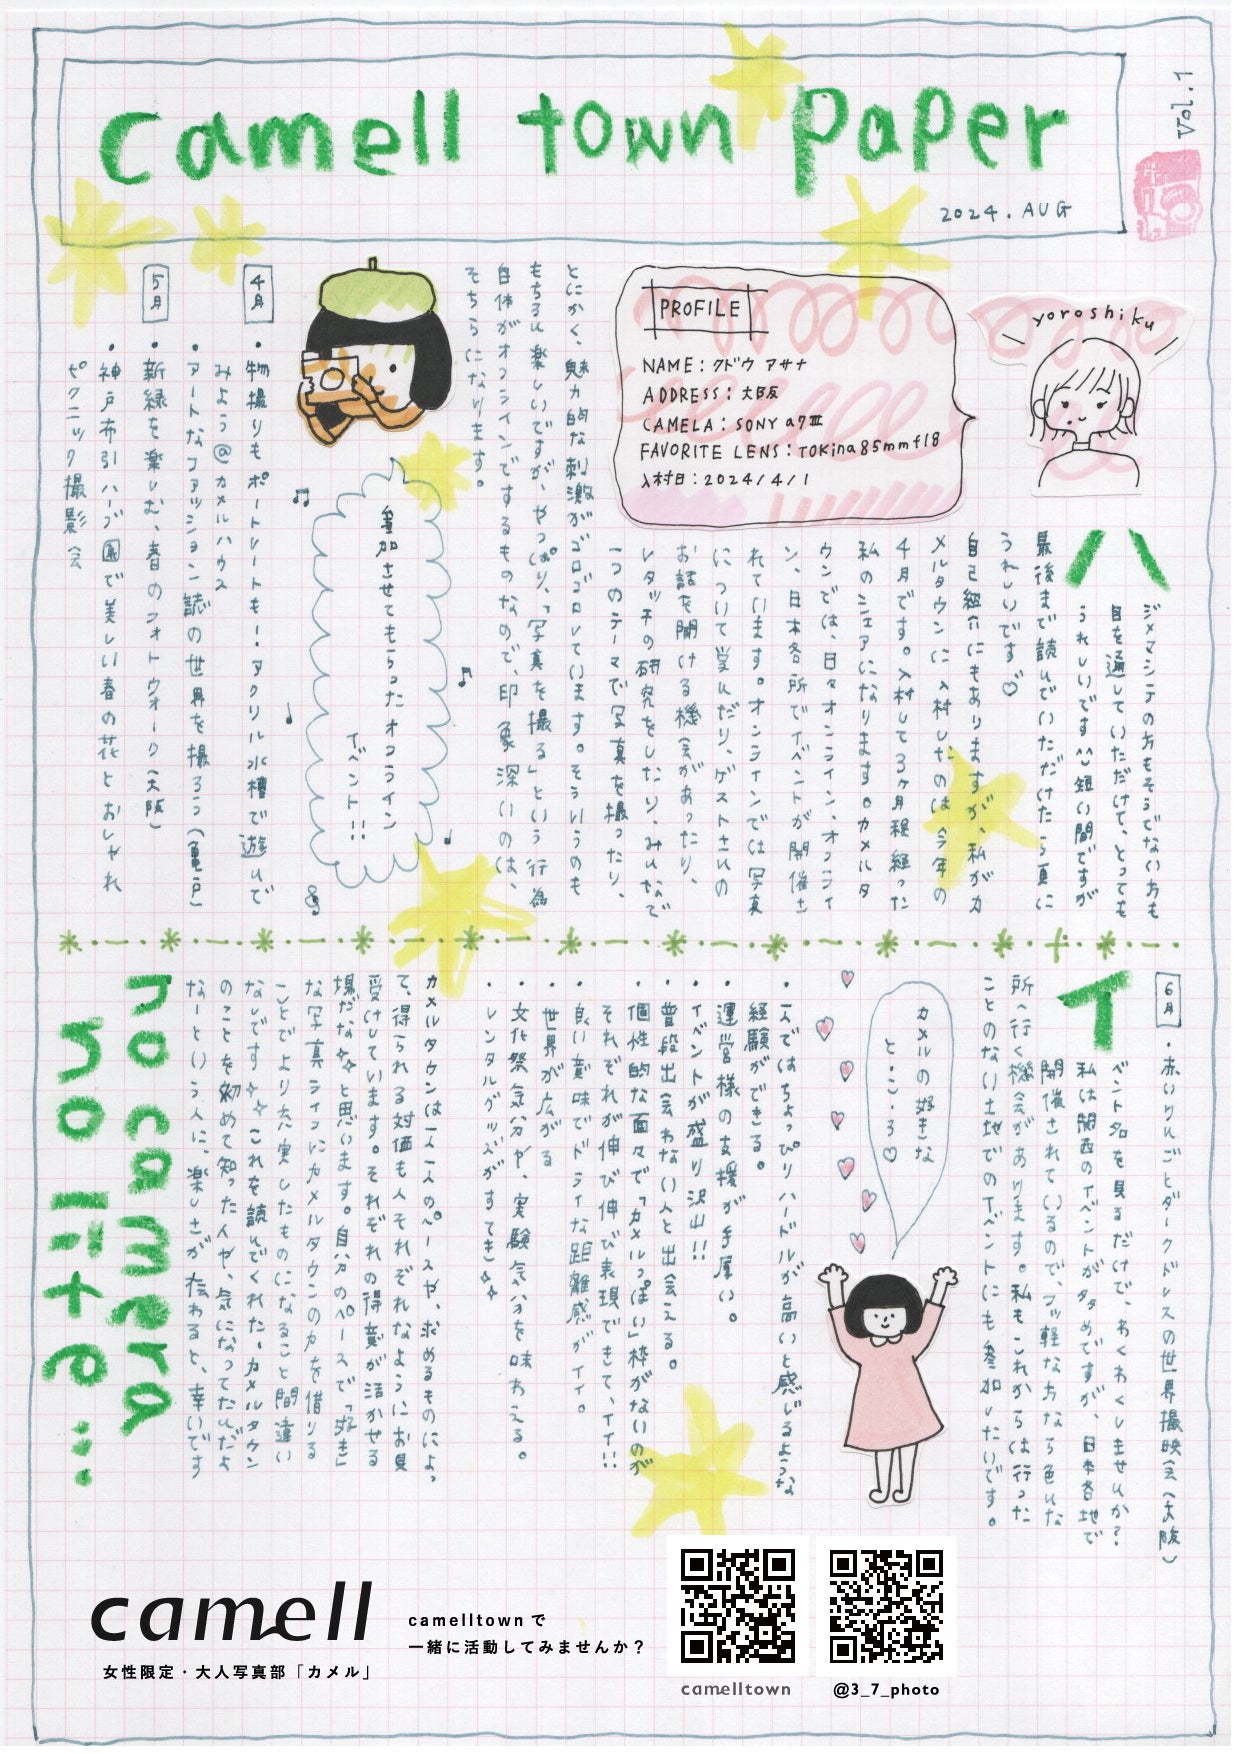 camell town paper
vol.1
2024.AUG
yoroshiku
PROFILE
NAME：クドウ アサナ
ADDRESS：大阪
CAMELA：SONY α7Ⅲ
FAVORITE LENS：TOKina85mmf1.8
入村日：2024/4/1
ハ
ジメマシテの方もそうでない方も
目を通していただけて、とっても
うれしいです^^短い間ですが
最後まで読んでいただけたら更に
うれしいです♡
自己紹介にもありますが、私がカ
メルタウンに入村したのは今年の
4月です。入村して3ヶ月程経った
私のシェアになります。カメルタ
ウンでは、日々オンライン、オフライ
ン、日本各所でイベントが開催さ
れています。オンラインでは写真
について学んだり、ゲストさんの
お話を聞ける機会があったり、
レタッチの研究をしたり、みんなで
一つのテーマで写真を撮ったり、
とにかく、魅力的な刺激がゴロゴロしています。そういうのも
もちろん楽しいですが、やっぱり、「写真を撮る」という行為
自体がオフラインでするものなので、印象深いのは、
そちらになります。
参加させてもらったオフライン
イベント!!
4月
・物撮りもポートレートも！アクリル水槽で遊んで
みよう@カメルハウス
・アートなファッション誌の世界を撮ろう（亀戸）
5月
・新緑を楽しむ、春のフォトウォーク（大阪）
・神戸布引ハーブ園で美しい春の花とおしゃれ
ピクニック撮影会
6月
・赤いりんごとダークドレスの世界撮映会（大阪）
イ
ベント名を見るだけで、わくわくしませんか？
私は関西のイベントが多めですが、日本各地で
開催されているので、フッ軽な方なら色んな
所へ行く機会があります。私もこれからは行った
ことのない土地でのイベントにも参加したいです。
カメルの好きな
と・こ・ろ♡
・一人ではちょっぴりハードルが高いと感じるような
経験ができる。
・運営様の支援が手厚い。
・イベントが盛り沢山!!
・普段出会わない人と出会える。
・個性的な面々で「カメルっぽい」枠がないのが
それぞれが伸び伸び表現できて、イイ!!
・良い意味でドライな距離感がイイ。
・世界が広がる
・文化祭気分や、実験気分を味わえる。
・レンタルグッズがすてき✧✧
カメルタウンは一人一人のペースや、求めるものによっ
て、得られる対価も人それぞれなようにお見
受けしています。それぞれの得意が活かせる
場だな✧✧と思います。自分のペースで「好き」
な写真ライフにカメルタウンの力を借りる
ことでより充実したものになること間違い
なしです✧✧これを読んでくれた、カメルタウン
のことを初めて知った人や、気になってたんだよ
なーという人に、楽しさが伝わると、幸いです
no camera
no life...
camell
女性限定・大人写真部「カメル」
camelltownで
一緒に活動してみませんか？
camelltown
@3_7_photo